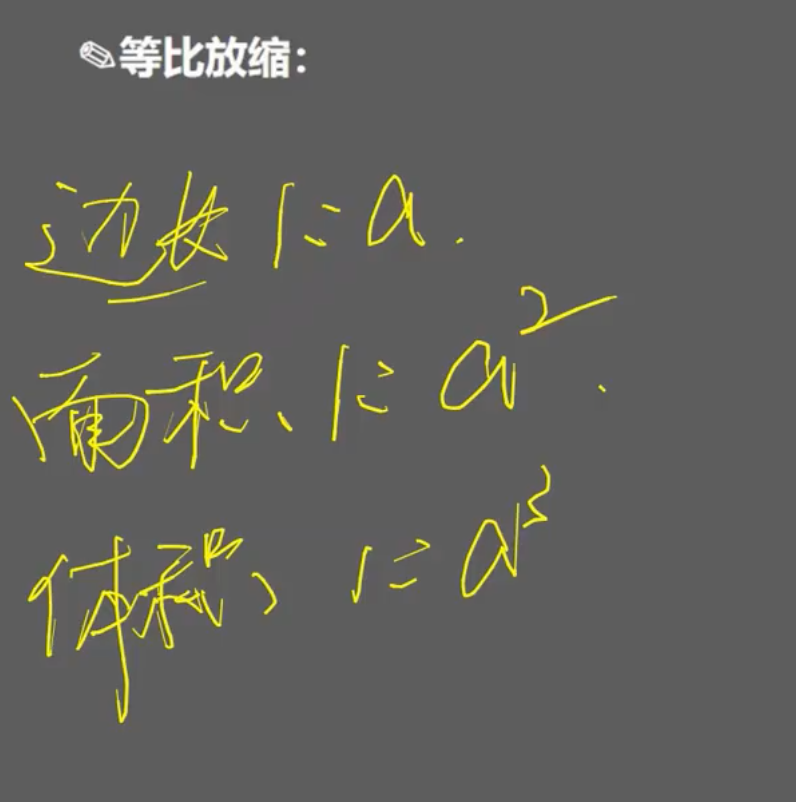 等比放缩：
边长 1:a.
面积、1:a².
体积、1:a³